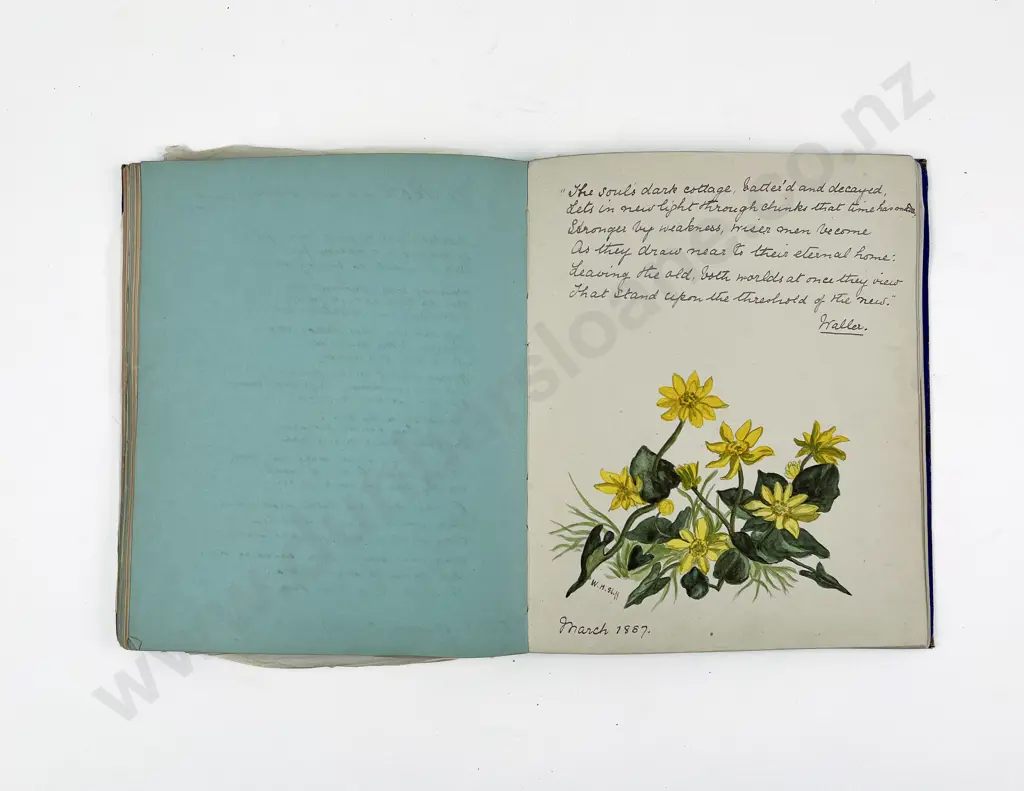 "The soul's dark cottage, batter'd and decayed,
Lets in new light through chinks that time has made,
Stronger by weakness, wiser men become
As they draw near to their eternal home:
Leaving the old, both worlds at once they view
That stand upon the threshold of the new."
Waller.
W.H.
March 1887.
www.dunbarsloane.co.nz